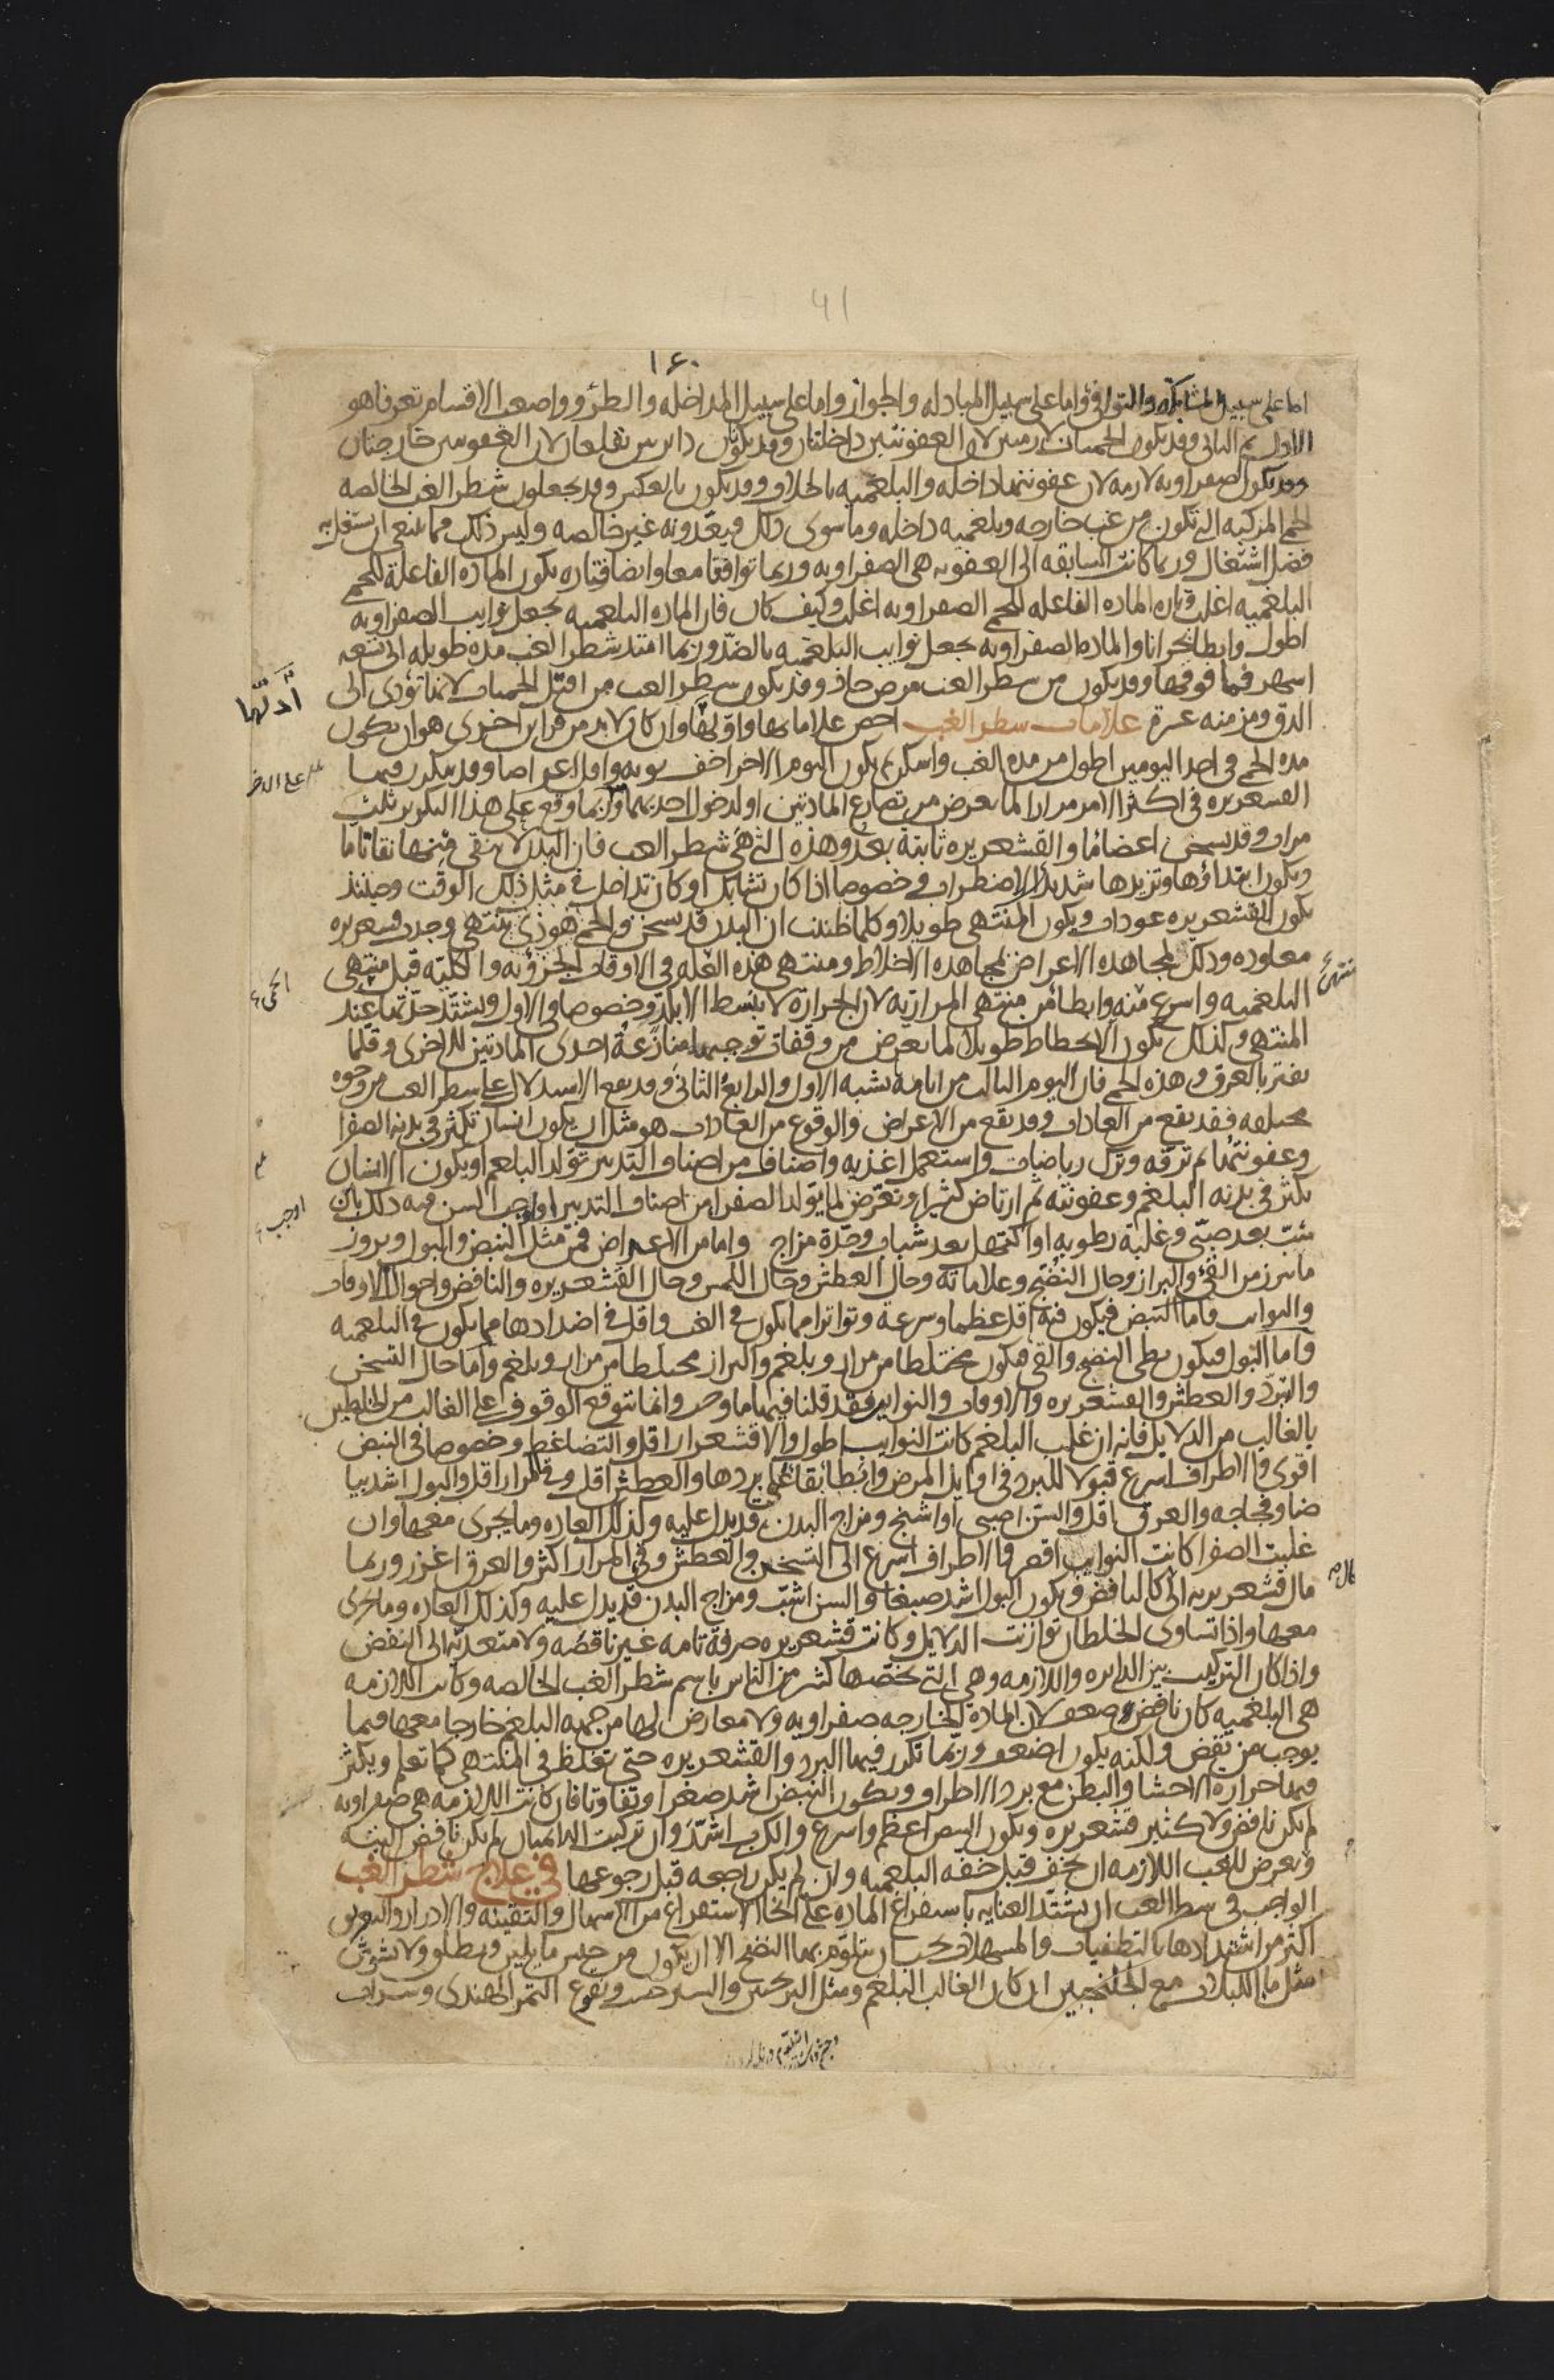 41
١٤٠
اما على سبيل المشابكة والتوافق واما على سبيل المبادله والجواز واما على سبيل المداخله والطرو واصعب الاقسام تعرفا هو
الاول ثم الثانى وقد يكون الحميتان لازمتين لان العفونتين داخلتان وقد يكونان دايرتين تقلعان لان العفونتين خارجتان
وقد يكون الصفراويه لازمه لان عفونتها داخله والبلغميه بالخلاف وقد يكون بالعكس وقد يجعلون شطر الغب الخالصه
الحمى المركبه التى تكون من غب خارجه وبلغميه داخله وما سوى ذلك فيعدونه غير خالصه وليس ذلك مما ينبغى ان يشتغل به
فضل اشتغال وربما كانت السابقه الى العفونه هى الصفراويه وربما توافتا معا وايضا فتاره يكون الماده الفاعلة للحمى
البلغميه اغلب وتاره الماده الفاعله للحمى الصفراويه اغلب وكيف كان فان الماده البلغميه يجعل نوايب الصفراويه
اطول وابطا بحرانا والماده الصفراويه يجعل نوايب البلغميه بالضد وربما امتد شطر الغب مده طويله الى تسعه
اشهر فما فوقها وقد يكون من شطر الغب مرض حاد وقد يكون شطر الغب من اقتل الحميات لانها تؤدى الى
الدق ومزمنه عسرة علامات شطر الغب اخص علاماتها واولها وان كان لا بد من قراين اخرى هو ان يكون
مده الحمى فى احد اليومين اطول من مده الغب واسكن ثم يكون اليوم الاخر اخف نوبه واقل اعراضا وقد يتكرر فيها
القشعريره فى اكثر الامر مرارا لما يعرض من تصارع المادتين او لدخول احديهما وربما وقع على هذا التكرير ثلث
مرات وقد يسخن اعضا ما والقشعريره ثابتة بعد وهذه التى هى شطر الغب فان البدن لا ينقى فيها نقا تاما
ويكون ابتداؤها وتزيدها شديد الاضطراب وخصوصا اذا كان تشابك او كان تداخل فى مثل ذلك الوقت وحينئذ
يكون للقشعريره عودات ويكون المنتهى طويلا وكلما ظننت ان البدن قد سخن والحمى هو ذى تنتهى وجدت قشعريره
معاوده وذلك لمجاهده الاعراض لمجاهده الاخلاط ومنتهى هذه العله فى الاوقات الجزؤيه والكليه قبل منتهى
البلغميه واسرع منه وابطا من منتهى المراريه لان الحرارة لا تنبسط الا بكد وخصوصا فى الاول ويشتد حدتها عند
المنتهى وكذلك يكون الانحطاط طويلا لما يعرض من وقفات توجبها منازعة احدى المادتين للاخرى وقلما
يفتر بالعرق وهذه الحمى فان اليوم الثالث من ايامه يشبه الاول والرابع الثانى وقد يقع الاستدلال على شطر الغب من وجوه
مختلفه فقد يقع من العادات وقد يقع من الاعراض والوقوع من العادات هو مثل ان يكون انسان تكثر فى بدنه الصفرا
وعفونتها ثم ترفه وترك رياضات واستعمل اغذيه واصنافا من اصناف التدبير تولد البلغم او يكون الانسان
يكثر فى بدنه البلغم وعفونته ثم ارتاض كثيرا وتعرض لما يولد الصفرا من اصناف التدبير او اوجب السن فيه ذلك بان
شب بعد صبى وغلبة رطوبه او اكتهل بعد شباب وحدة مزاج واما من الاعراض فمن مثل النبض والبول وبروز
ما يبرز من القئ والبراز وحال النضج وعلاماته وحال العطش وحال اللمس وحال القشعريره والنافض واحوال الاوقات
والنوايب فاما النبض فيكون فيه اقل عظما وسرعة وتواترا مما يكون فى الغب واقل فى اضدادها مما يكون فى البلغميه
واما البول فيكون بطى النضج والقى فيكون مختلطا من مرار وبلغم والبراز مختلطا من مرار وبلغم واما حال التسخن
والتبرد والعطش والقشعريره والاوقات والنوايب فقد قلنا فيها ما وجب وانما تتوقع الوقوف على الغالب من الخلطين
بالغالب من الدلايل فانه ان غلب البلغم كانت النوايب اطول والاقشعرار اقل والتضاغط وخصوصا فى النبض
اقوى والاطراف اسرع قبولا للبرد فى اوايل المرض وابطا بقا على بردها والعطش اقل وقى المرار اقل والبول اشد بيا
ضا وفجاجه والعرق اقل والسن اصبى او اشيخ ومزاج البدن قد يدل عليه وكذلك العاده وما يجرى معها وان
غلبت الصفرا كانت النوايب اقصر والاطراف اسرع الى التسخن والعطش وقى المرار اكثر والعرق اغزر وربما
مال قشعريرته الى كالنافض ويكون البول اشد صبغا والسن اشب ومزاج البدن قد يدل عليه وكذلك العاده وما يجرى
معها واذا تساوى الخلطان توازنت الدلايل وكانت قشعريره صرفة تامه غير ناقصه ولا متعدية الى النفض
واذا كان التركيب بين الدايره واللازمه وهى التى يخصها كثير من الناس باسم شطر الغب الخالصه وكانت اللازمه
هى البلغميه كان نافض وضعف لان الماده الخارجه صفراويه ولا معارض لها من جهه البلغم خارجا معها فيما
يوجب من نفض ولكنه يكون اضعف وربما تكرر فيها البرد والقشعريره حتى تغلظ فى المنتهى كما تعلم ويكثر
فيها حرارة الاحشا والبطن مع برد الاطراف ويكون النبض اشد صغرا وتفاوتا فان كانت اللازمه هى صفراويه
لم يكن نافض ولا كثير قشعريره ويكون النبض اعظم واسرع والكرب اشد وان تركبت الدايمتان لم يكن نافض البته
ويعرض للغب اللازمه ان يخف قبل خفه البلغميه وان لم يكن واضحه قبل رجوعها فى علاج شطر الغب
الواجب فى شطر الغب ان يشتد العنايه باستفراغ الماده على انحا الاستفراغ من الاسهال والتقيئه والادرار والتعريق
اكثر من اشتدادها بالتطفيات والمسهلات يجب ان يتلوم بها النضج الا ان يكون من جنس ما يلين ويطلق ولا يشوش
مثل ما اللبلاب مع الجلنجبين ان كان الغالب البلغم ومثل الترنجبين والشيرخشت ونقوع التمر الهندى وشراب
ادلها
الحمى
منتهى
اوجب
مال